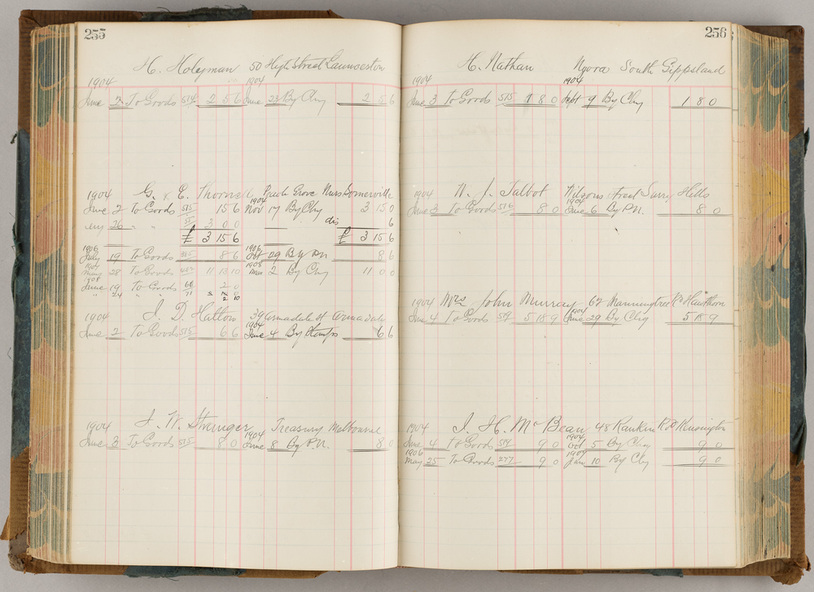 255
H. Holyman 50 High Street Launceston
1904 1904
June 2 To Goods 2 5 6 June 23 By Chq 2 5 6
1904 G. & E. Nurs Somerville
June 2 To Goods 515 15 6 1904 Nov 17 By Chq 3 15 0
26 " " 3 0 0 dis 6
£ 3 15 6 £ 3 15 6
1906 1906
July 19 To Goods 8 6 Oct 29 By PN 8 6
28 To Goods 11 2 By Chq 11 0 0
1908
June 19 To Goods
" 24 "
1904 J. D. Hatton 39 Armadale St Armadale
June 2 To Goods 515 6 6 1904 June 4 By Stamps 6 6
1904 J. W. Stringer Treasury Melbourne
June 3 To Goods 515 8 0 1904 June 8 By P.N. 8 0
256
H. Nathan Nyora South Gippsland
1904 1904
June 3 To Goods 515 1 8 0 Sept 9 By Chq 1 8 0
1904 N. J. Talbot Surry Hills
June 3 To Goods 516 8 0 1904 June 6 By P.N. 8 0
1904 Mrs John Murray 62 Manningtree Rd Hawthorn
June 4 To Goods 5 18 9 1904 June 29 By Chq 5 18 9
1904 J. H. McBean 48 Rankin Rd Kensington
June 4 To Goods 9 0 1904 Oct 5 By Chq 9 0
1906
May 25 To Goods 9 0 Jan 10 By Chq 9 0